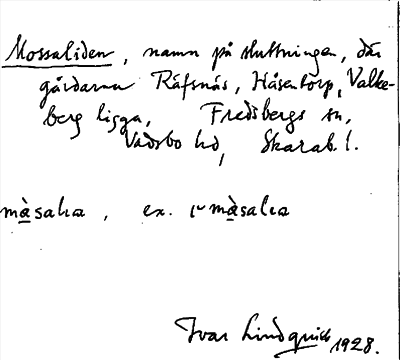 Mossaliden, namn på sluttningen, där
gårdarna Räfsnäs, Håsentorp, Valke-
berg ligga, Fredsbergs sn,
Vadsbo hd, Skarab. l.
màsalıa, ex. ɩ màsalıa
Ivar Lindquist 1928.